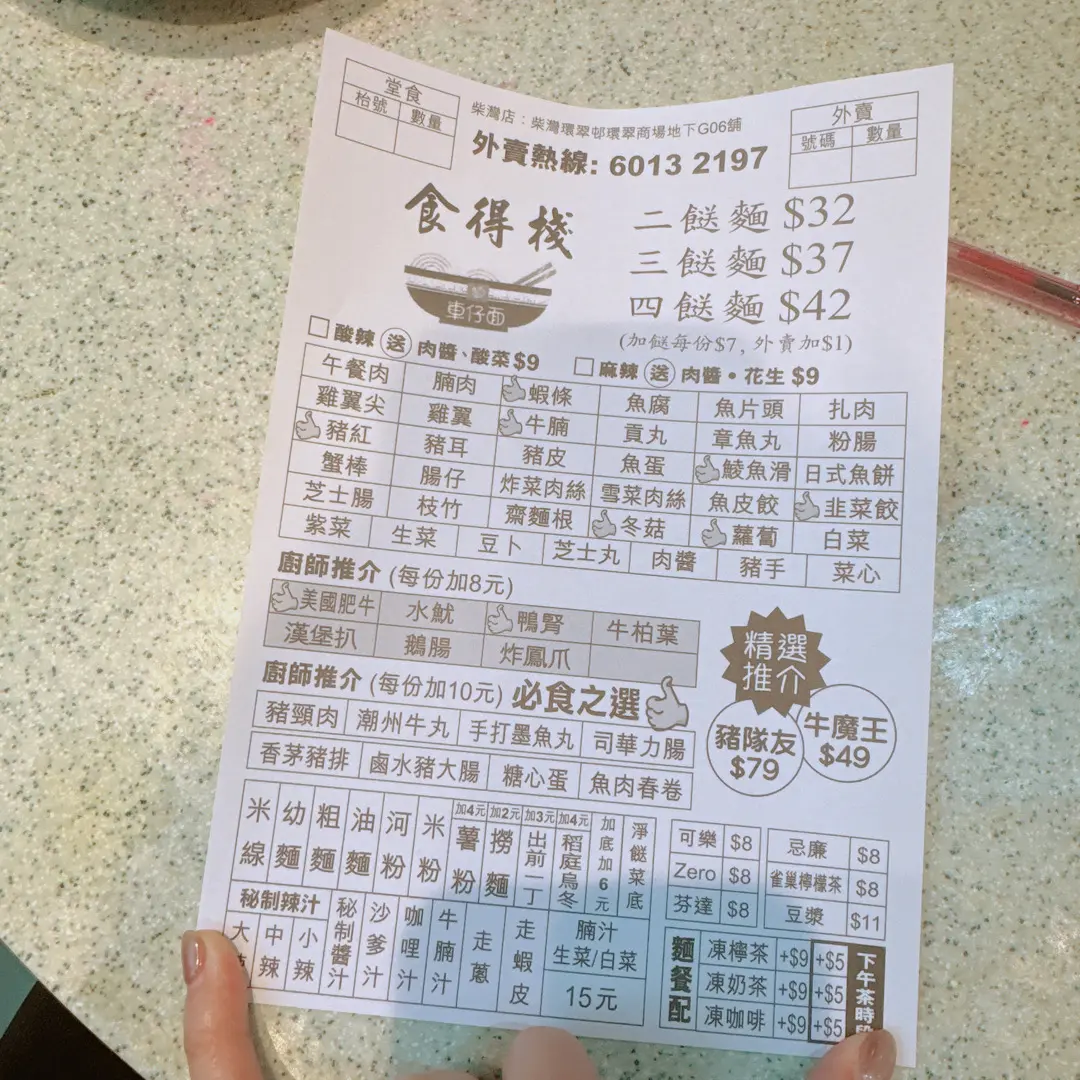 堂食
枱號 數量
柴灣店：柴灣環翠邨環翠商場地下G06舖
外賣熱線: 6013 2197
外賣
號碼 數量
食得棧
車仔面
二餸麵 $32
三餸麵 $37
四餸麵 $42
(加餸每份$7, 外賣加$1)
酸辣 送 肉醬、酸菜 $9
麻辣 送 肉醬•花生 $9
午餐肉 腩肉 蝦條 魚腐 魚片頭 扎肉
雞翼尖 雞翼 牛腩 貢丸 章魚丸 粉腸
豬紅 豬耳 豬皮 魚蛋 鯪魚滑 日式魚餅
蟹棒 腸仔 炸菜肉絲 雪菜肉絲 魚皮餃 韭菜餃
芝士腸 枝竹 齋麵根 冬菇 蘿蔔 白菜
紫菜 生菜 豆卜 芝士丸 肉醬 豬手 菜心
廚師推介 (每份加8元)
美國肥牛 水魷 鴨腎 牛柏葉
漢堡扒 鵝腸 炸鳳爪
廚師推介 (每份加10元) 必食之選
豬頸肉 潮州牛丸 手打墨魚丸 司華力腸
香茅豬排 鹵水豬大腸 糖心蛋 魚肉春卷
精選
推介
豬隊友
$79
牛魔王
$49
米線 幼麵 粗麵 油麵 河粉 米粉
加4元 薯粉
加2元 撈麵
加3元 出前一丁
加4元 稻庭烏冬
加底加6元
淨餸菜底
秘制辣汁
大 中辣 小辣
秘制醬汁 沙爹汁 咖哩汁 牛腩汁 走蔥 走蝦皮
腩汁
生菜/白菜
15元
可樂 $8
Zero $8
芬達 $8
忌廉 $8
雀巢檸檬茶 $8
豆漿 $11
麵餐配
凍檸茶 +$9 +$5
凍奶茶 +$9 +$5
凍咖啡 +$9 +$5
下午茶時段